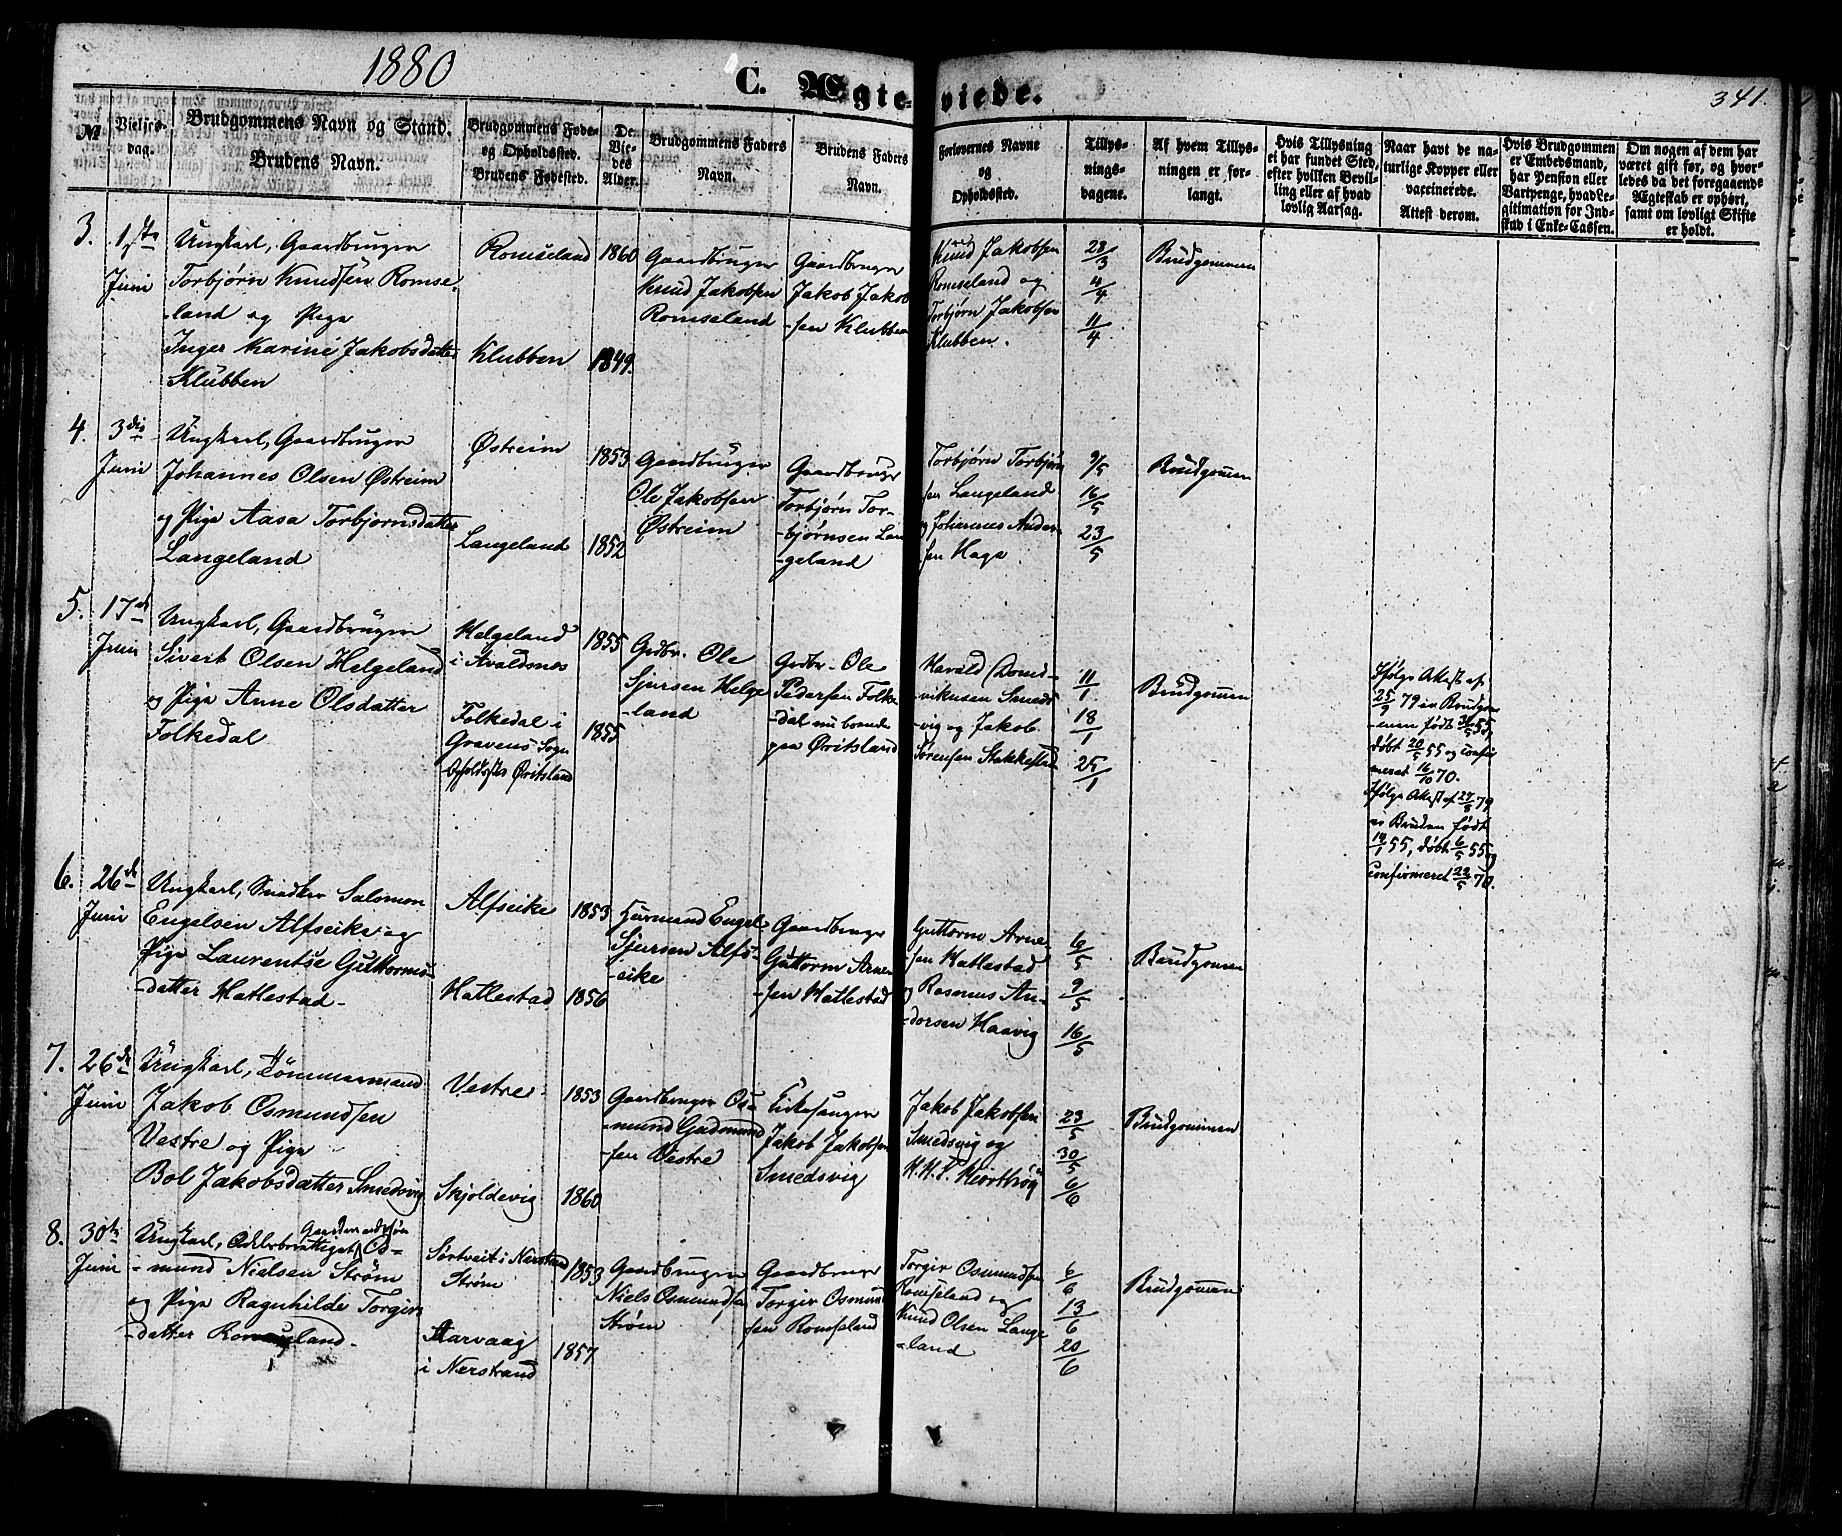 1880
C. Ægte-viede.
341.
№
Vielses-
dag.
Brudgommens Navn og Stand.
Brudens Navn.
Brudgommens Føde-
og Opholdssted.
Brudens Fødested.
De
Vie-
des
Alder.
Brudgommens Faders
Navn.
Brudens Faders
Navn.
Forlovernes Navne
og
Opholdssted.
Tillys-
nings-
dagene.
Af hvem Tillys-
ningen er for-
langt.
Hvis Tillysning
ei har fundet Sted,
efter hvilken Bevil-
ling eller af hvad
lovlig Aarsag.
Naar havt de na-
turlige Kopper eller
vaccinerede.
Attest derom.
Hvis Brudgommen
er Embedsmand,
har Pension eller
Vartpenge, hvad Le-
gitimation for Ind-
skud i Enke-Cassen.
Om nogen af dem har
været gift før, og hvor-
ledes da det foregaaende
Ægteskab er ophørt,
samt om lovligt Skifte
er holdt.
3.
1ste
Juni
Ungkarl, Gaardbruger
Torbjørn Knudsen Romse-
-land og Pige
Inger Karine Jakobsdatter
Klubben
Romseland
Klubben
1860
1849.
Gaardbruger
Knud Jakobsen
Romseland
Gaardbruger
Jakob Jakob
-sen Klubben
Knud Jakobsen
Romseland og
Torbjørn Jakobsen
Klubben.
23/3
4/4
11/4
Brudgommen
4.
3die
Juni
Ungkarl, Gaardbruger
Johannes Olsen Østreim
og Pige Aasa Torbjørnsdatter
Langeland
Østreim
Langeland
1853
1852
Gaardbruger
Ole Jakobsen
Østreim
Gaardbruger
Torbjørn Tor-
-bjørnsen Lan
-geland
Torbjørn Torbjørn
sen Langeland
og Johannes Ander
sen Haga
9/5
16/5
23/5
Brudgommen
5.
17de
Juni
Ungkarl, Gaardbruger
Sivert Olsen Helgeland
og Pige Anne Olsdatter
Folkedal
Helgeland
i Avaldsnes
Folkedal i
Gravens Sogn
Opholdssted Øritsland
1855
1855
Grdbr. Ole
Sjursen Helge
-land
Grdbr. Ole
Pedersen Folke
-dal nu boende
paa Øritsland
Harald Domd-
vikusen Smeds
-vig og Jakob
Sørensen Stakkestad
11/1
18/1
25/1
Brudgommen
Ifølge Attest af
25/9 79 er Brudgom
-men født 3/5 55,
døbt 20/5 55 og confir
meret 16/10 70.
Ifølge Attest af 27/8 79
er Bruden født
19/1 55, døbt 6/5 55 og
confirmeret 22/5 70.
6.
26de
Juni
Ungkarl, Snedker Salomon
Engelsen Alfseike og
Pige Laurentse Guttorms-
-datter Hatlestad -
Alfseike
Hatlestad
1853
1856
Huusmand Engel
Sjursen Alfs-
-eike
Gaardbruger
Guttorm Arne
-sen Hatlestad
Guttorm Arne-
-sen Hatlestad
og Rasmus An-
-dersen Haavig
6/5
9/5
16/5
Brudgommen
7.
26de
Juni
Ungkarl, Tømmermand
Jakob Osmundsen
Vestre og Pige
Bol Jakobsdatter Smedsvig
Vestre
Skjoldevig
1853
1860
Gaardbruger Os-
-mund Gudmund
-sen Vestre
Kirkesanger
Jakob Jakobsen
Smedsvig
Jakob Jakobsen
Smedsvig og
23/5
30/5
6/6
Brudgommen
8.
30te
Juni
Gaardmandssøn
Ungkarl, Odelsberettiget Os-
-mund Nielsen Strøm
og Pige Ragnhilde Torgirs
-datter Romseland.
Sørtveit i Nerstrand
Strøm
Aarvaag
i Nerstrand
1853
1857
Gaardbruger
Niels Osmundsen
Strøm
Gaardbruger
Torgir Osmund
sen Romseland
Torgir Osmundsen
Romseland og
Knud Olsen Lange
-land
6/6
13/6
20/6
Brudgommen